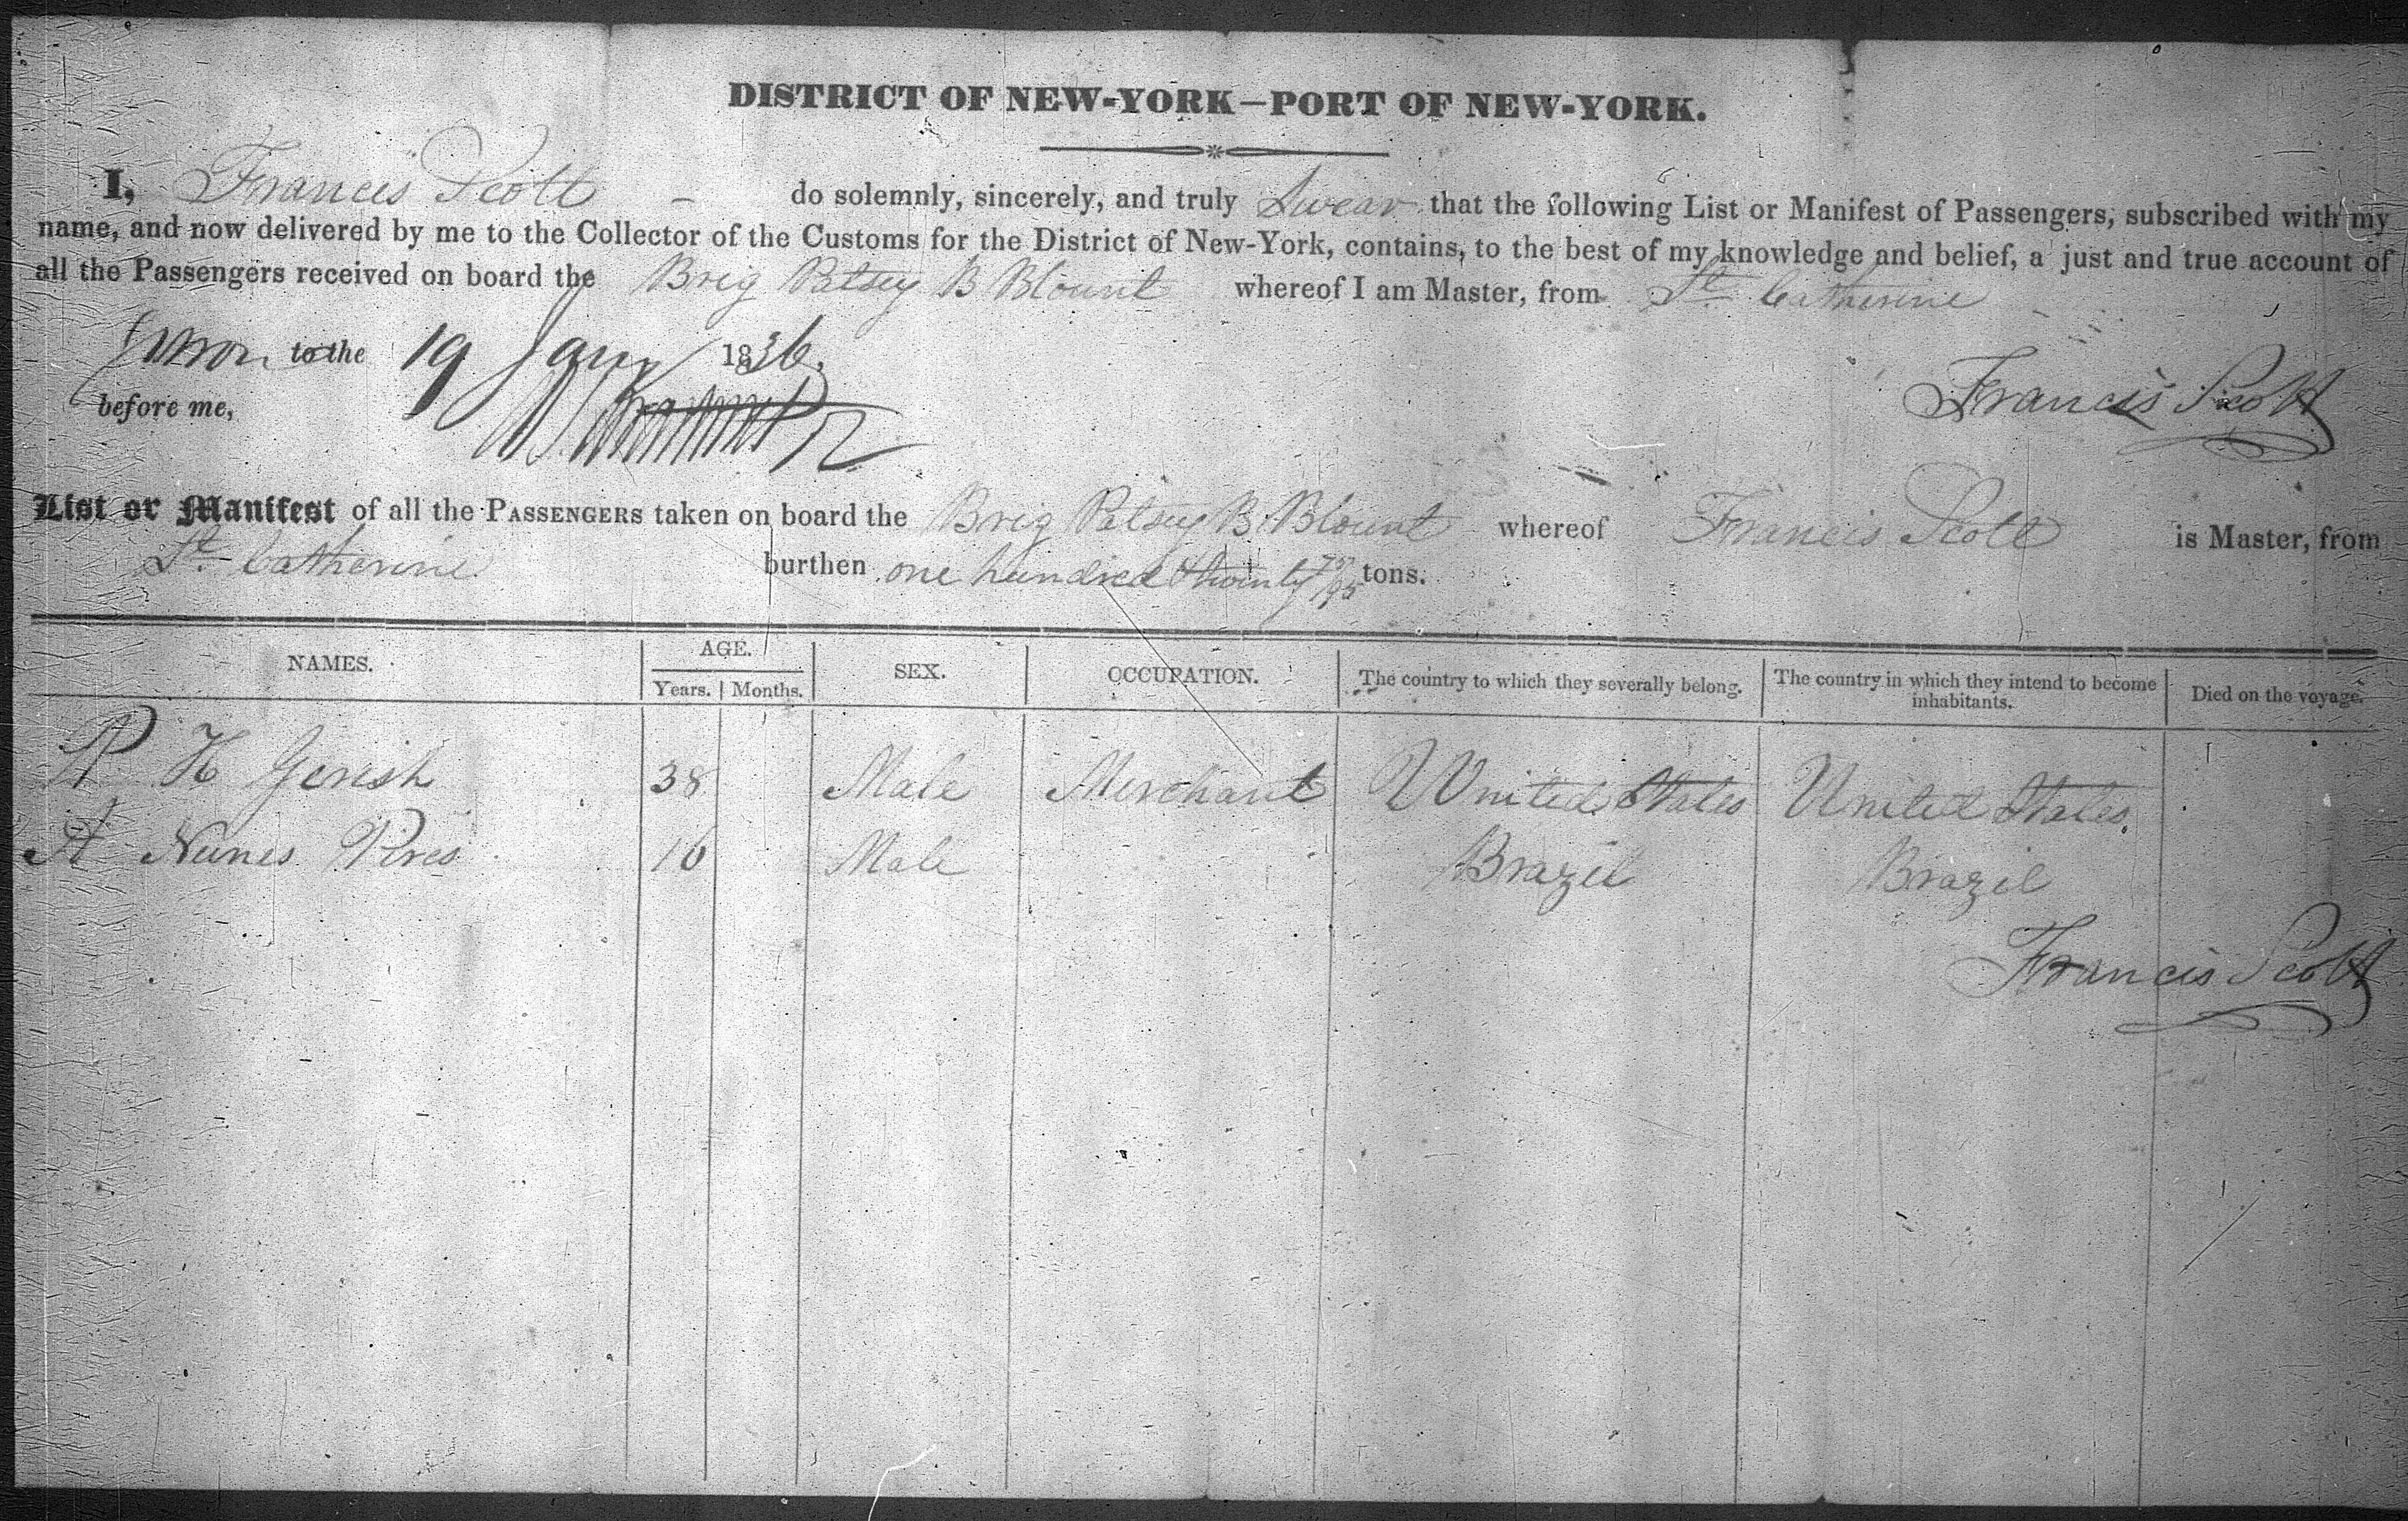 DISTRICT OF NEW-YORK—PORT OF NEW-YORK.
I, Francis Scott – do solemnly, sincerely, and truly Swear that the following List or Manifest of Passengers, subscribed with my
name, and now delivered by me to the Collector of the Customs for the District of New-York, contains, to the best of my knowledge and belief, a just and true account of
all the Passengers received on board the Brig Patsey B Blount whereof I am Master, from St Catherine
Sworn to the 19 Jany 1836.
Francis Scott
before me,
List or Manifest of all the PASSENGERS taken on board the Brig Patsey B. Blount whereof Francis Scott is Master, from
St Catherine burthen one hundred & twenty 75/95 tons.
NAMES. AGE. SEX. OCCUPATION. The country to which they severally belong. The country in which they intend to become inhabitants. Died on the voyage.
Years. Months.
A H Gerish 38 Male Merchant United States United States
A Nunes Pires 16 Male Brazil Brazil
Francis Scott